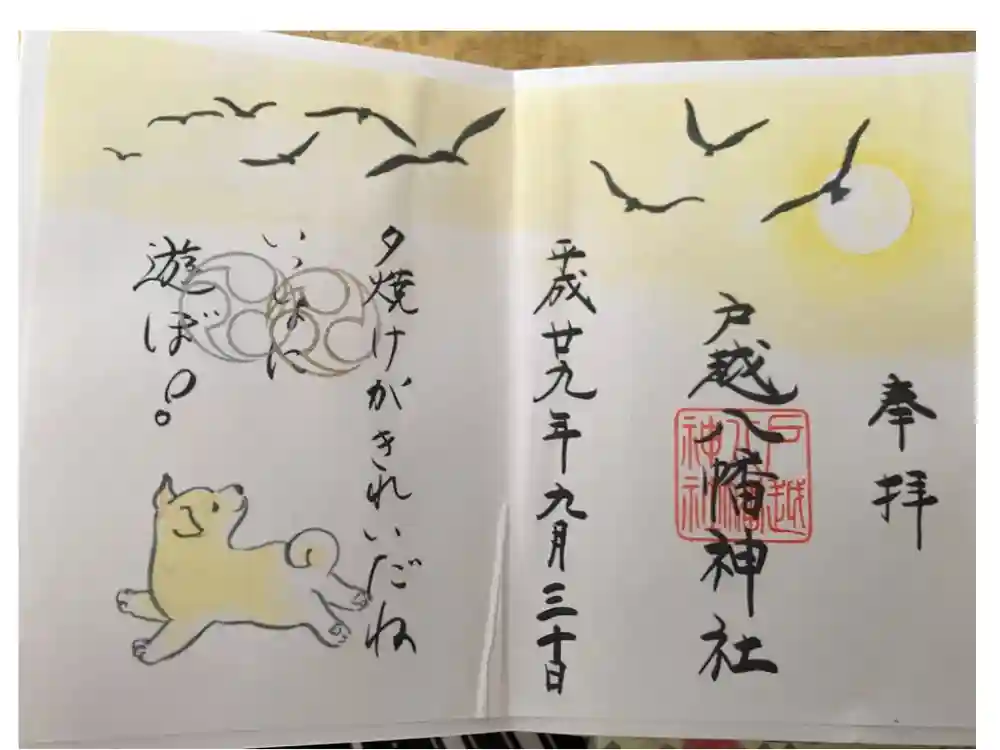 奉拝
戸越八幡神社
戸越
八幡
神社
平成廿九年九月三十日
夕焼けがきれいだね
いっしょに
遊ぼ!。